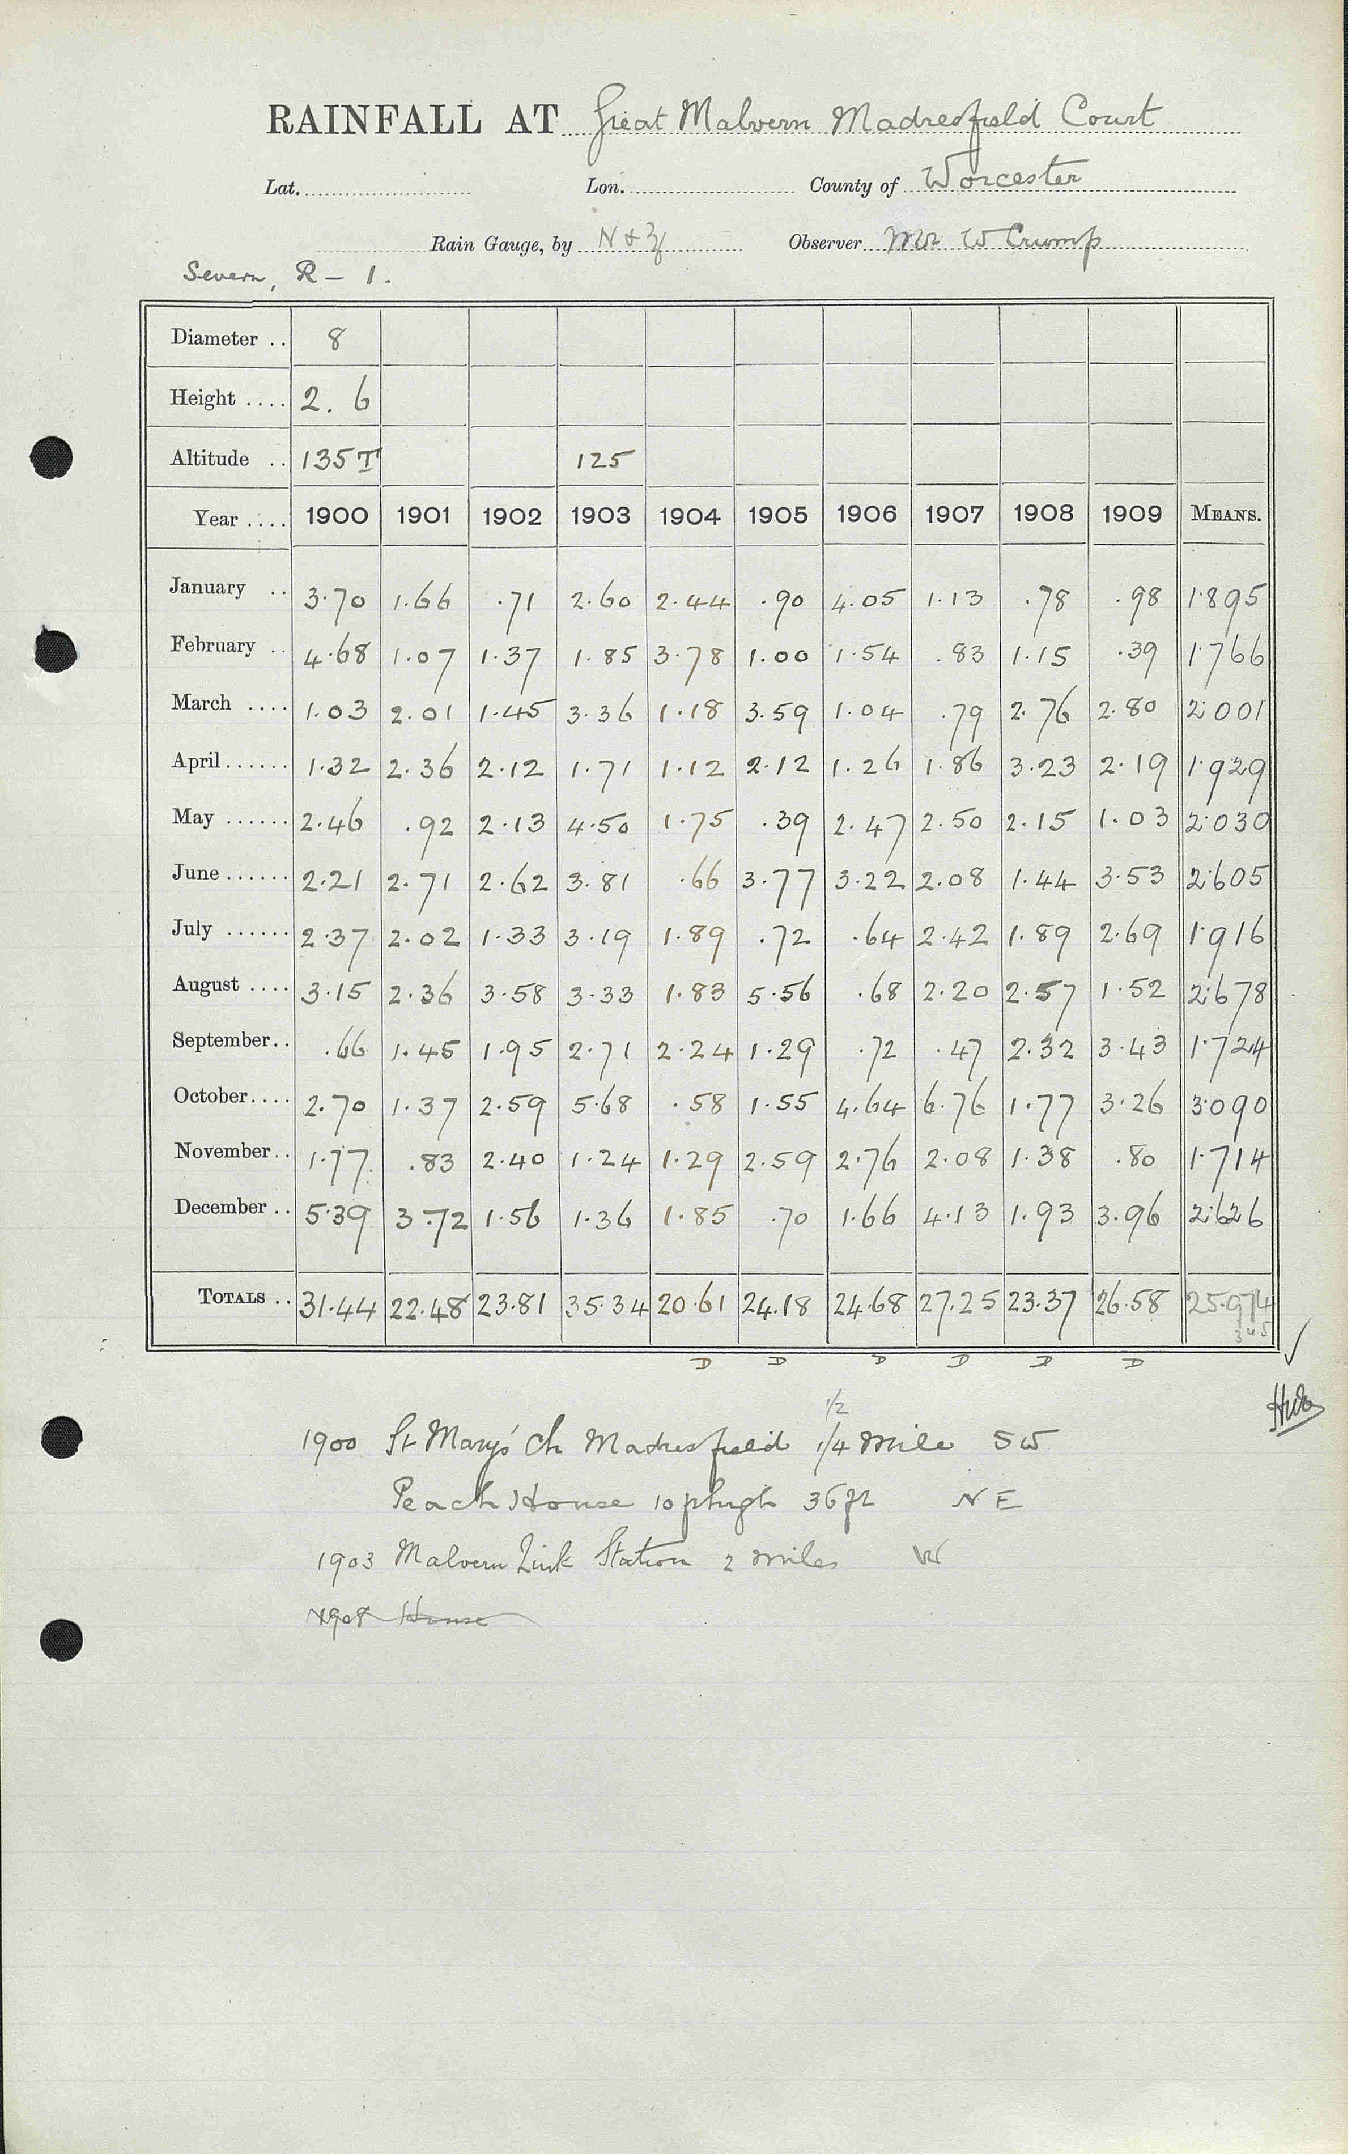 RAINFALL AT Great Malvern Madresfield Court
Lat. Lon. County of Worcester
Rain Gauge, by N & Z Observer Mr W Crump
Severn, R - 1.
Diameter .. 8
Height .... 2. 6
Altitude .. 135 T 125
Year .... 1900 1901 1902 1903 1904 1905 1906 1907 1908 1909 MEANS.
January .. 3.70 1.66 .71 2.60 2.44 .90 4.05 1.13 .78 .98 1.895
February .. 4.68 1.07 1.37 1.85 3.78 1.00 1.54 .83 1.15 .39 1.766
March .... 1.03 2.01 1.45 3.36 1.18 3.59 1.04 .79 2.76 2.80 2.001
April ...... 1.32 2.36 2.12 1.71 1.12 2.12 1.26 1.86 3.23 2.19 1.929
May ...... 2.46 .92 2.13 4.50 1.75 .39 2.47 2.50 2.15 1.03 2.030
June ...... 2.21 2.71 2.62 3.81 .66 3.77 3.22 2.08 1.44 3.53 2.605
July ...... 2.37 2.02 1.33 3.19 1.89 .72 .64 2.42 1.89 2.69 1.916
August .... 3.15 2.36 3.58 3.33 1.83 5.56 .68 2.20 2.57 1.52 2.678
September .. .66 1.45 1.95 2.71 2.24 1.29 .72 .47 2.32 3.43 1.724
October .... 2.70 1.37 2.59 5.68 .58 1.55 4.64 6.76 1.77 3.26 3.090
November .. 1.77 .83 2.40 1.24 1.29 2.59 2.76 2.08 1.38 .80 1.714
December .. 5.39 3.72 1.56 1.36 1.85 .70 1.66 4.13 1.93 3.96 2.626
TOTALS .. 31.44 22.48 23.81 35.34 20.61 24.18 24.68 27.25 23.37 26.58 25.974
D D D D D D
1/2
1900 St Mary's Ch Madresfield 1/4 mile SW
Peach House 10ft high 36ft NE
1903 Malvern Link Station 2 miles W
1908 House